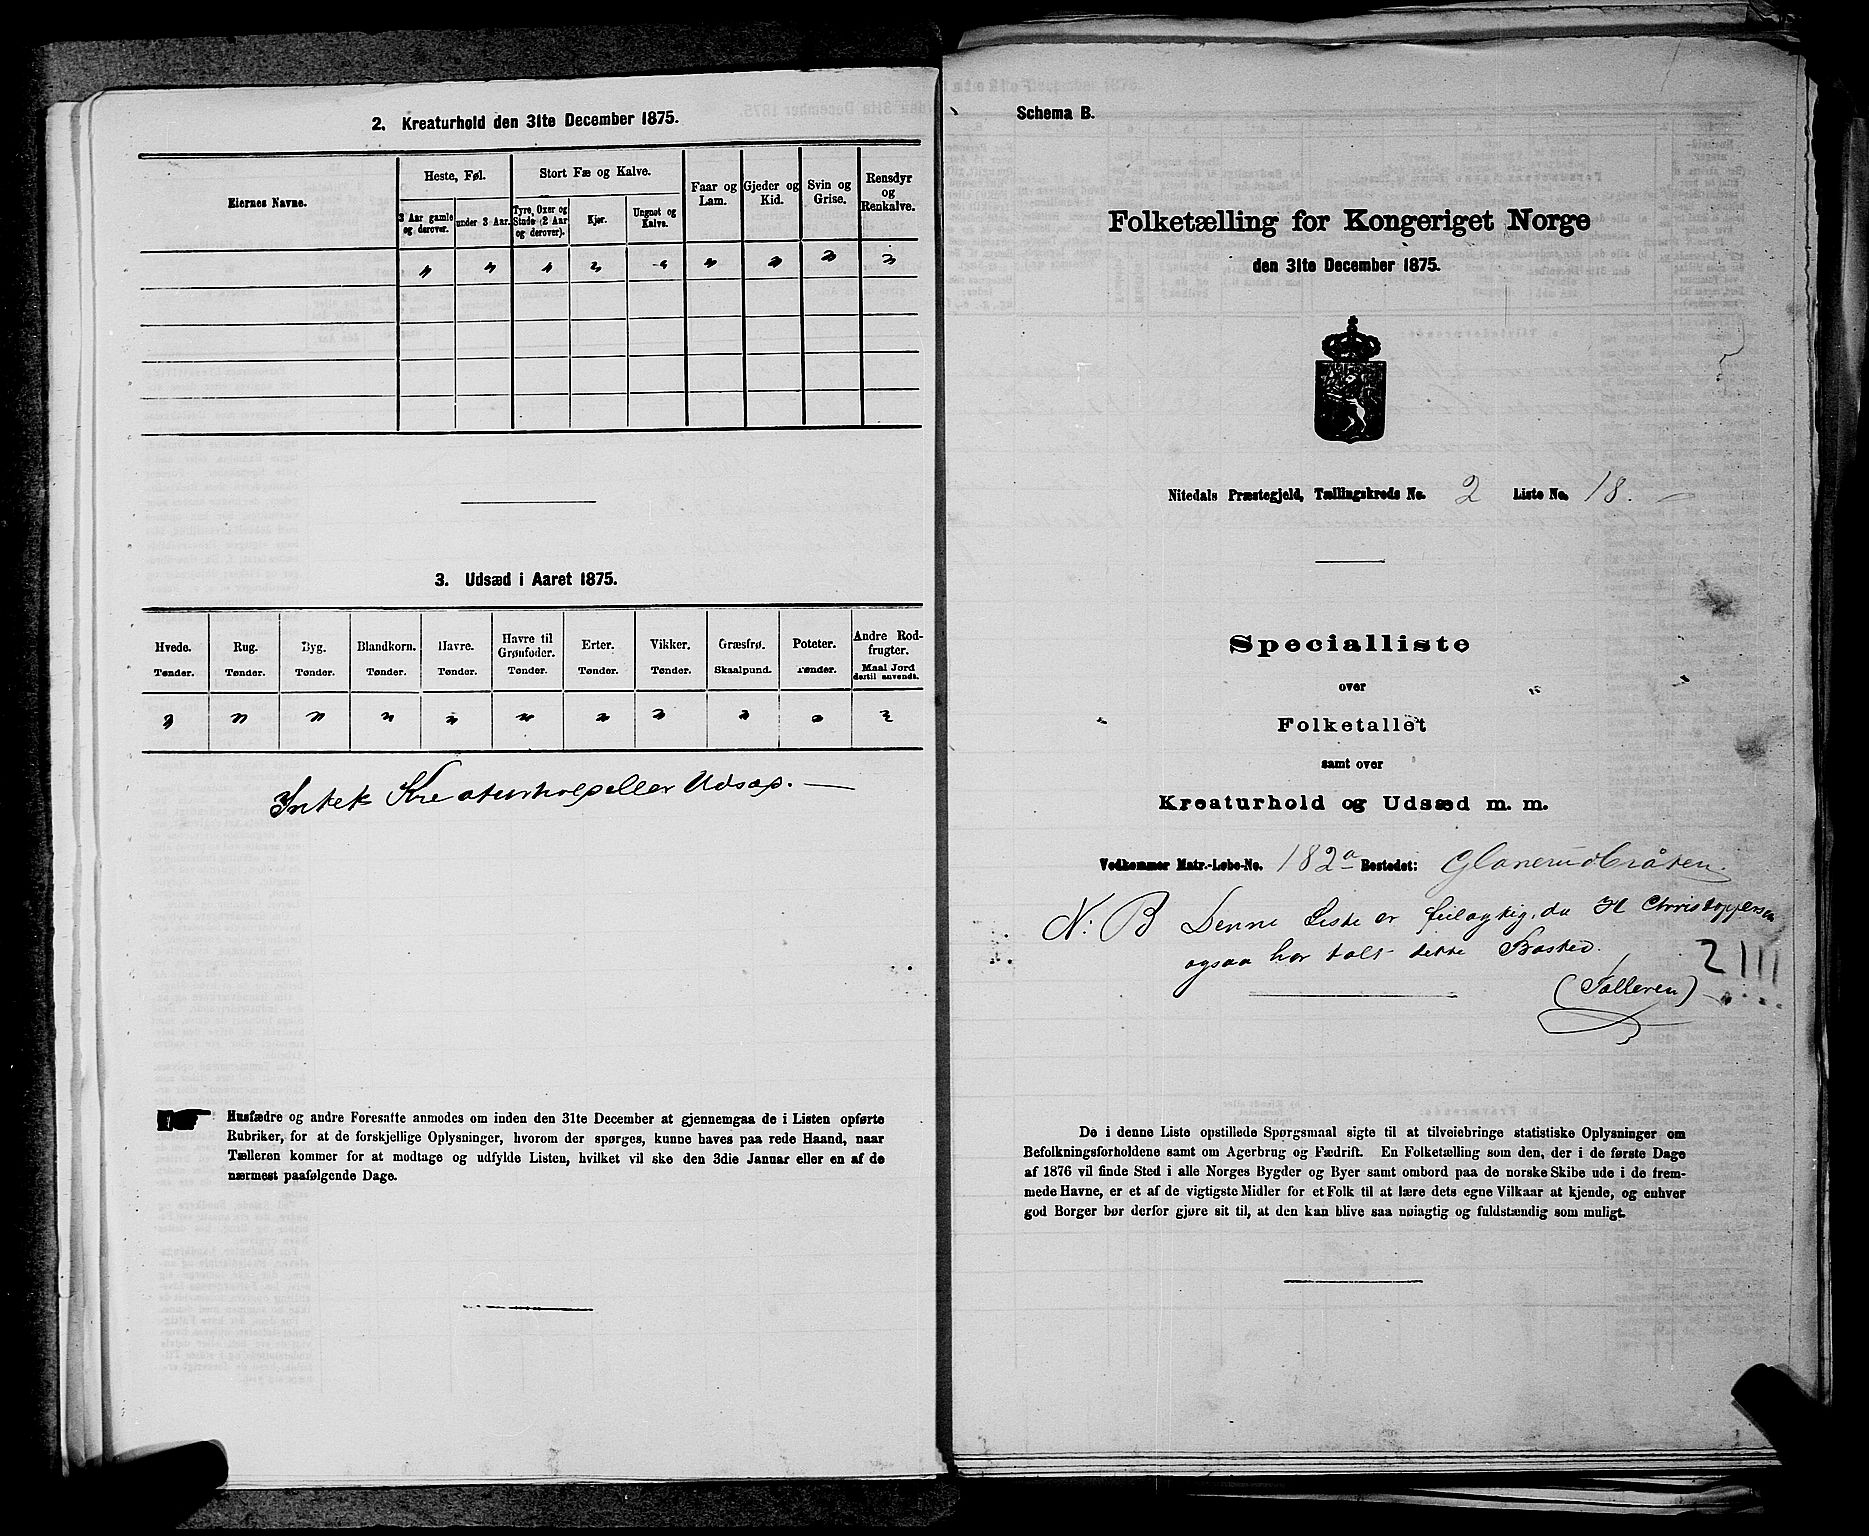 2. Kreaturhold den 31te December 1875.
Eiernes Navne.
Heste, Føl.
Stort Fæ og Kalve.
Faar og Lam.
Gjeder og Kid.
Svin og Grise.
Rensdyr og Renkalve.
3 Aar gamle og derover.
under 3 Aar.
Tyre, Oxer og Stude (2 Aar og derover).
Kjør.
Ungnøt og Kalve.
3. Udsæd i Aaret 1875.
Hvede. Rug. Byg. Blandkorn. Havre. Havre til Grønfoder. Erter. Vikker. Græsfrø. Poteter. Andre Rodfrugter.
Tønder. Tønder. Tønder. Tønder. Tønder. Tønder. Tønder. Tønder. Skaalpund. Tønder. Maal Jord dertil anvendt.
Intet Kreaturhold eller Udsæd. —
Husfædre og andre Foresatte anmodes om inden den 31te December at gjennemgaa de i Listen opførte
Rubriker, for at de forskjellige Oplysninger, hvorom der spørges, kunne haves paa rede Haand, naar
Tælleren kommer for at modtage og udfylde Listen, hvilket vil ske den 3die Januar eller en af de
nærmest paafølgende Dage.
Schema B.
Folketælling for Kongeriget Norge
den 31te December 1875.
Nitedals Præstegjeld, Tællingskreds No. 2 Liste No. 18. —
Specialliste
over
Folketallet
samt over
Kreaturhold og Udsæd m. m.
Vedkommer Matr.-Løbe-No. 182a Bostedet: Glanerudbråten.
N: B Denne Liste er feilagtig, da H Christoppersen
ogsaa har talt dette Bosted.
(Tælleren)
2111
De i denne Liste opstillede Spørgsmaal sigte til at tilveiebringe statistiske Oplysninger om
Befolkningsforholdene samt om Agerbrug og Fædrift. En Folketælling som den, der i de første Dage
af 1876 vil finde Sted i alle Norges Bygder og Byer samt ombord paa de norske Skibe ude i de frem-
mede Havne, er et af de vigtigste Midler for et Folk til at lære dets egne Vilkaar at kjende, og enhver
god Borger bør derfor gjøre sit til, at den kan blive saa nøiagtig og fuldstændig som muligt.